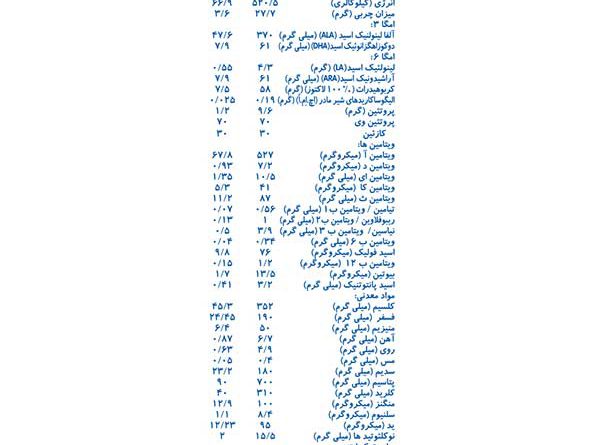 انرژی (کیلوکالری) ۵۲۰/۵ ۶۶/۹
میزان چربی (گرم) ۲۷/۷ ۳/۶
امگا ۳:
آلفا لینولنیک اسید (ALA) (میلی گرم) ۳۷۰ ۴۷/۶
دوکوزاهگزانوئیک اسید(DHA)(میلی گرم) ۶۱ ۷/۹
امگا ۶:
لینولئیک اسید(LA) (گرم) ۴/۳ ۰/۵۵
آراشیدونیک اسید(ARA) (میلی گرم) ۶۱ ۷/۹
کربوهیدرات (۱۰۰٪ لاکتوز) (گرم) ۵۸ ۷/۵
الیگوساکاریدهای شیر مادر (اچ.ام.أ) (گرم) ۰/۱۹ ۰/۰۲۵
پروتئین (گرم) ۹/۶ ۱/۲
پروتئین وی ۷۰ ۷۰
کازئین ۳۰ ۳۰
ویتامین ها:
ویتامین آ (میکروگرم) ۵۲۷ ۶۷/۸
ویتامین د (میکروگرم) ۷/۲ ۰/۹۳
ویتامین ای (میلی گرم) ۱۰/۵ ۱/۳۵
ویتامین کا (میکروگرم) ۴۱ ۵/۳
ویتامین ث (میلی گرم) ۸۷ ۱۱/۲
تیامین / ویتامین ب۱ (میلی گرم) ۰/۵۶ ۰/۰۷
ریبوفلاوین / ویتامین ب۲ (میلی گرم) ۱ ۰/۱۳
نیاسین/ ویتامین ب ۳ (میلی گرم) ۳/۹ ۰/۵
ویتامین ب ۶ (میلی گرم) ۰/۳۴ ۰/۰۴
اسید فولیک (میکروگرم) ۷۶ ۹/۸
ویتامین ب ۱۲ (میکروگرم) ۱/۲ ۰/۱۵
بیوتین (میکروگرم) ۱۳/۵ ۱/۷
اسید پانتوتنیک (میلی گرم) ۳/۲ ۰/۴۱
مواد معدنی:
کلسیم (میلی گرم) ۳۵۲ ۴۵/۳
فسفر (میلی گرم) ۱۹۰ ۲۴/۴۵
منیزیم (میلی گرم) ۵۰ ۶/۴
آهن (میلی گرم) ۶/۷ ۰/۸۷
روی (میلی گرم) ۴/۹ ۰/۶۳
مس (میلی گرم) ۰/۴ ۰/۰۵
سدیم (میلی گرم) ۱۸۰ ۲۳/۲
پتاسیم (میلی گرم) ۷۰۰ ۹۰
کلرید (میلی گرم) ۳۱۰ ۴۰
منگنز (میکروگرم) ۱۰۰ ۱۲/۹
سلنیوم (میکروگرم) ۸/۴ ۱/۱
ید (میکروگرم) ۹۵ ۱۲/۲۳
نوکلئوتید ها (میلی گرم) ۱۵/۵ ۲